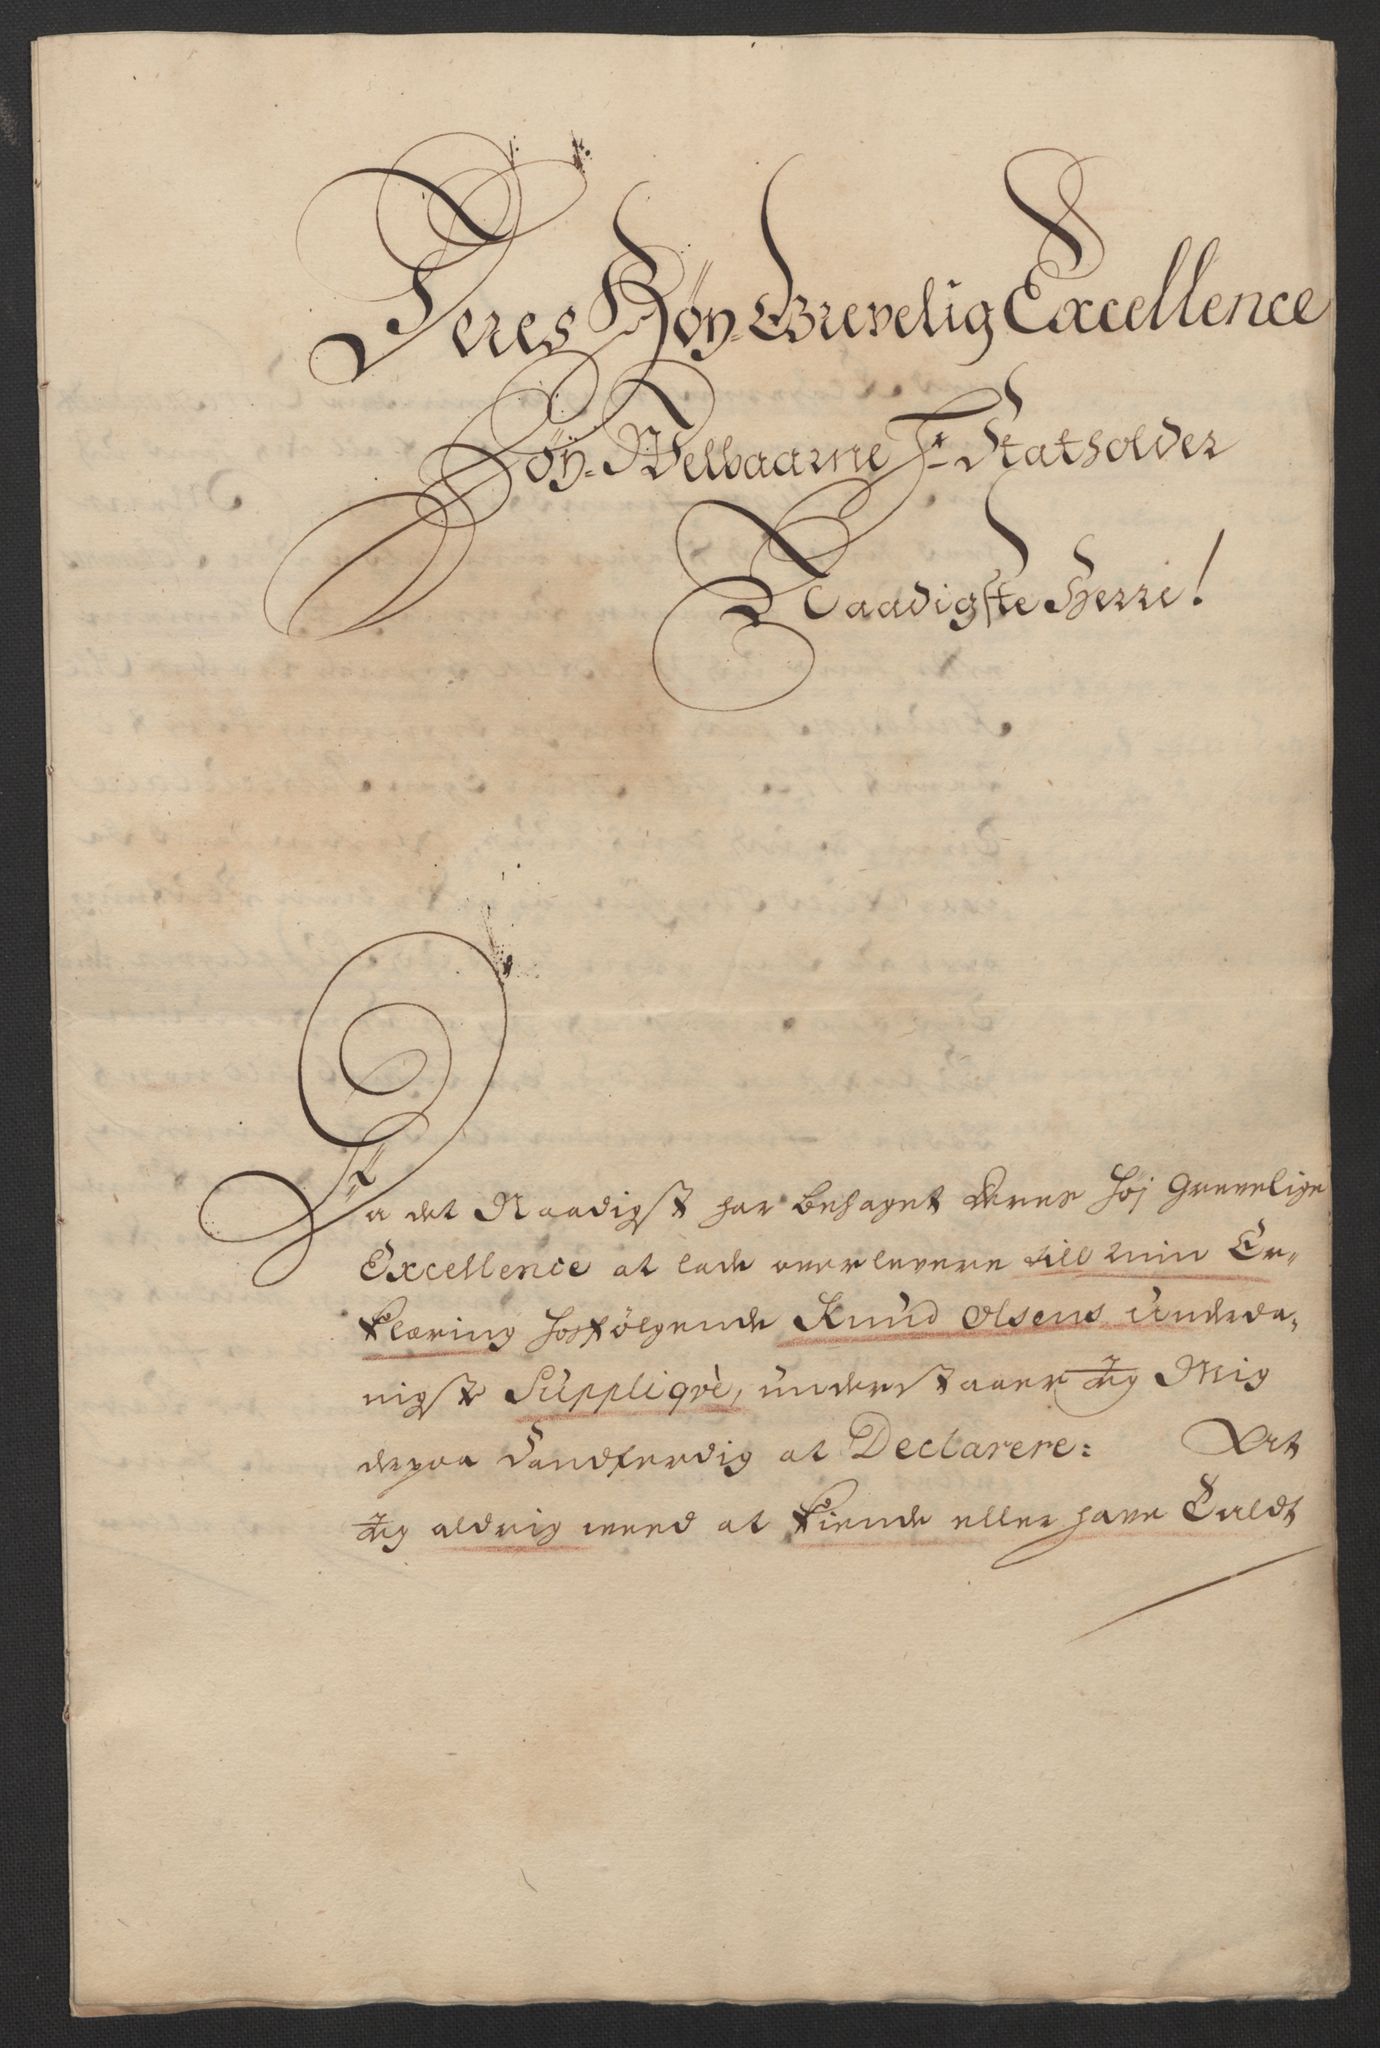 Deres Höy-Grevelig Excellence
Höy-Welbaarne Hr Statholder
Naadigste Herre!
Da det Naadigst har behaget Deres Höj Grevelige
Excellence at lade overlevere till min Er-
klæring hosfölgende Knud Olsens underda-
nigste Suppliqvè, understaaer Jeg Mig
depaa Sandferdig at Declarere: At
Jeg aldrig weed at kiende eller have Taldt